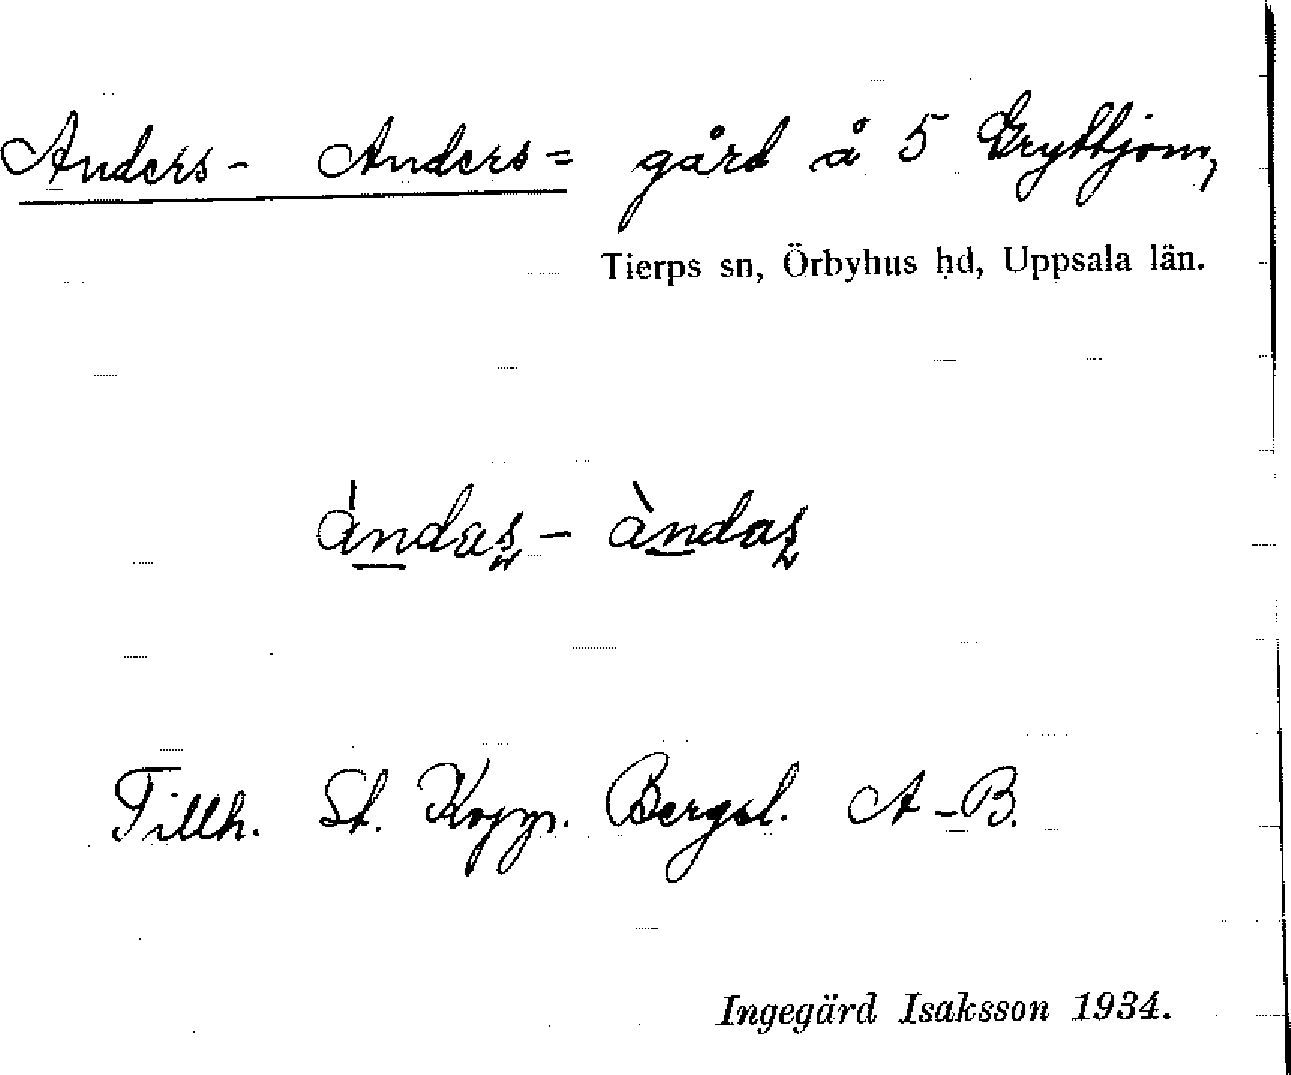 Anders- Anders= gård å 5 Grytbjom,
Tierps sn, Örbyhus hd, Uppsala län.
àndas - àndas
Tillh. St. Kopp. Bergsl. A-B.
Ingegärd Isaksson 1934.